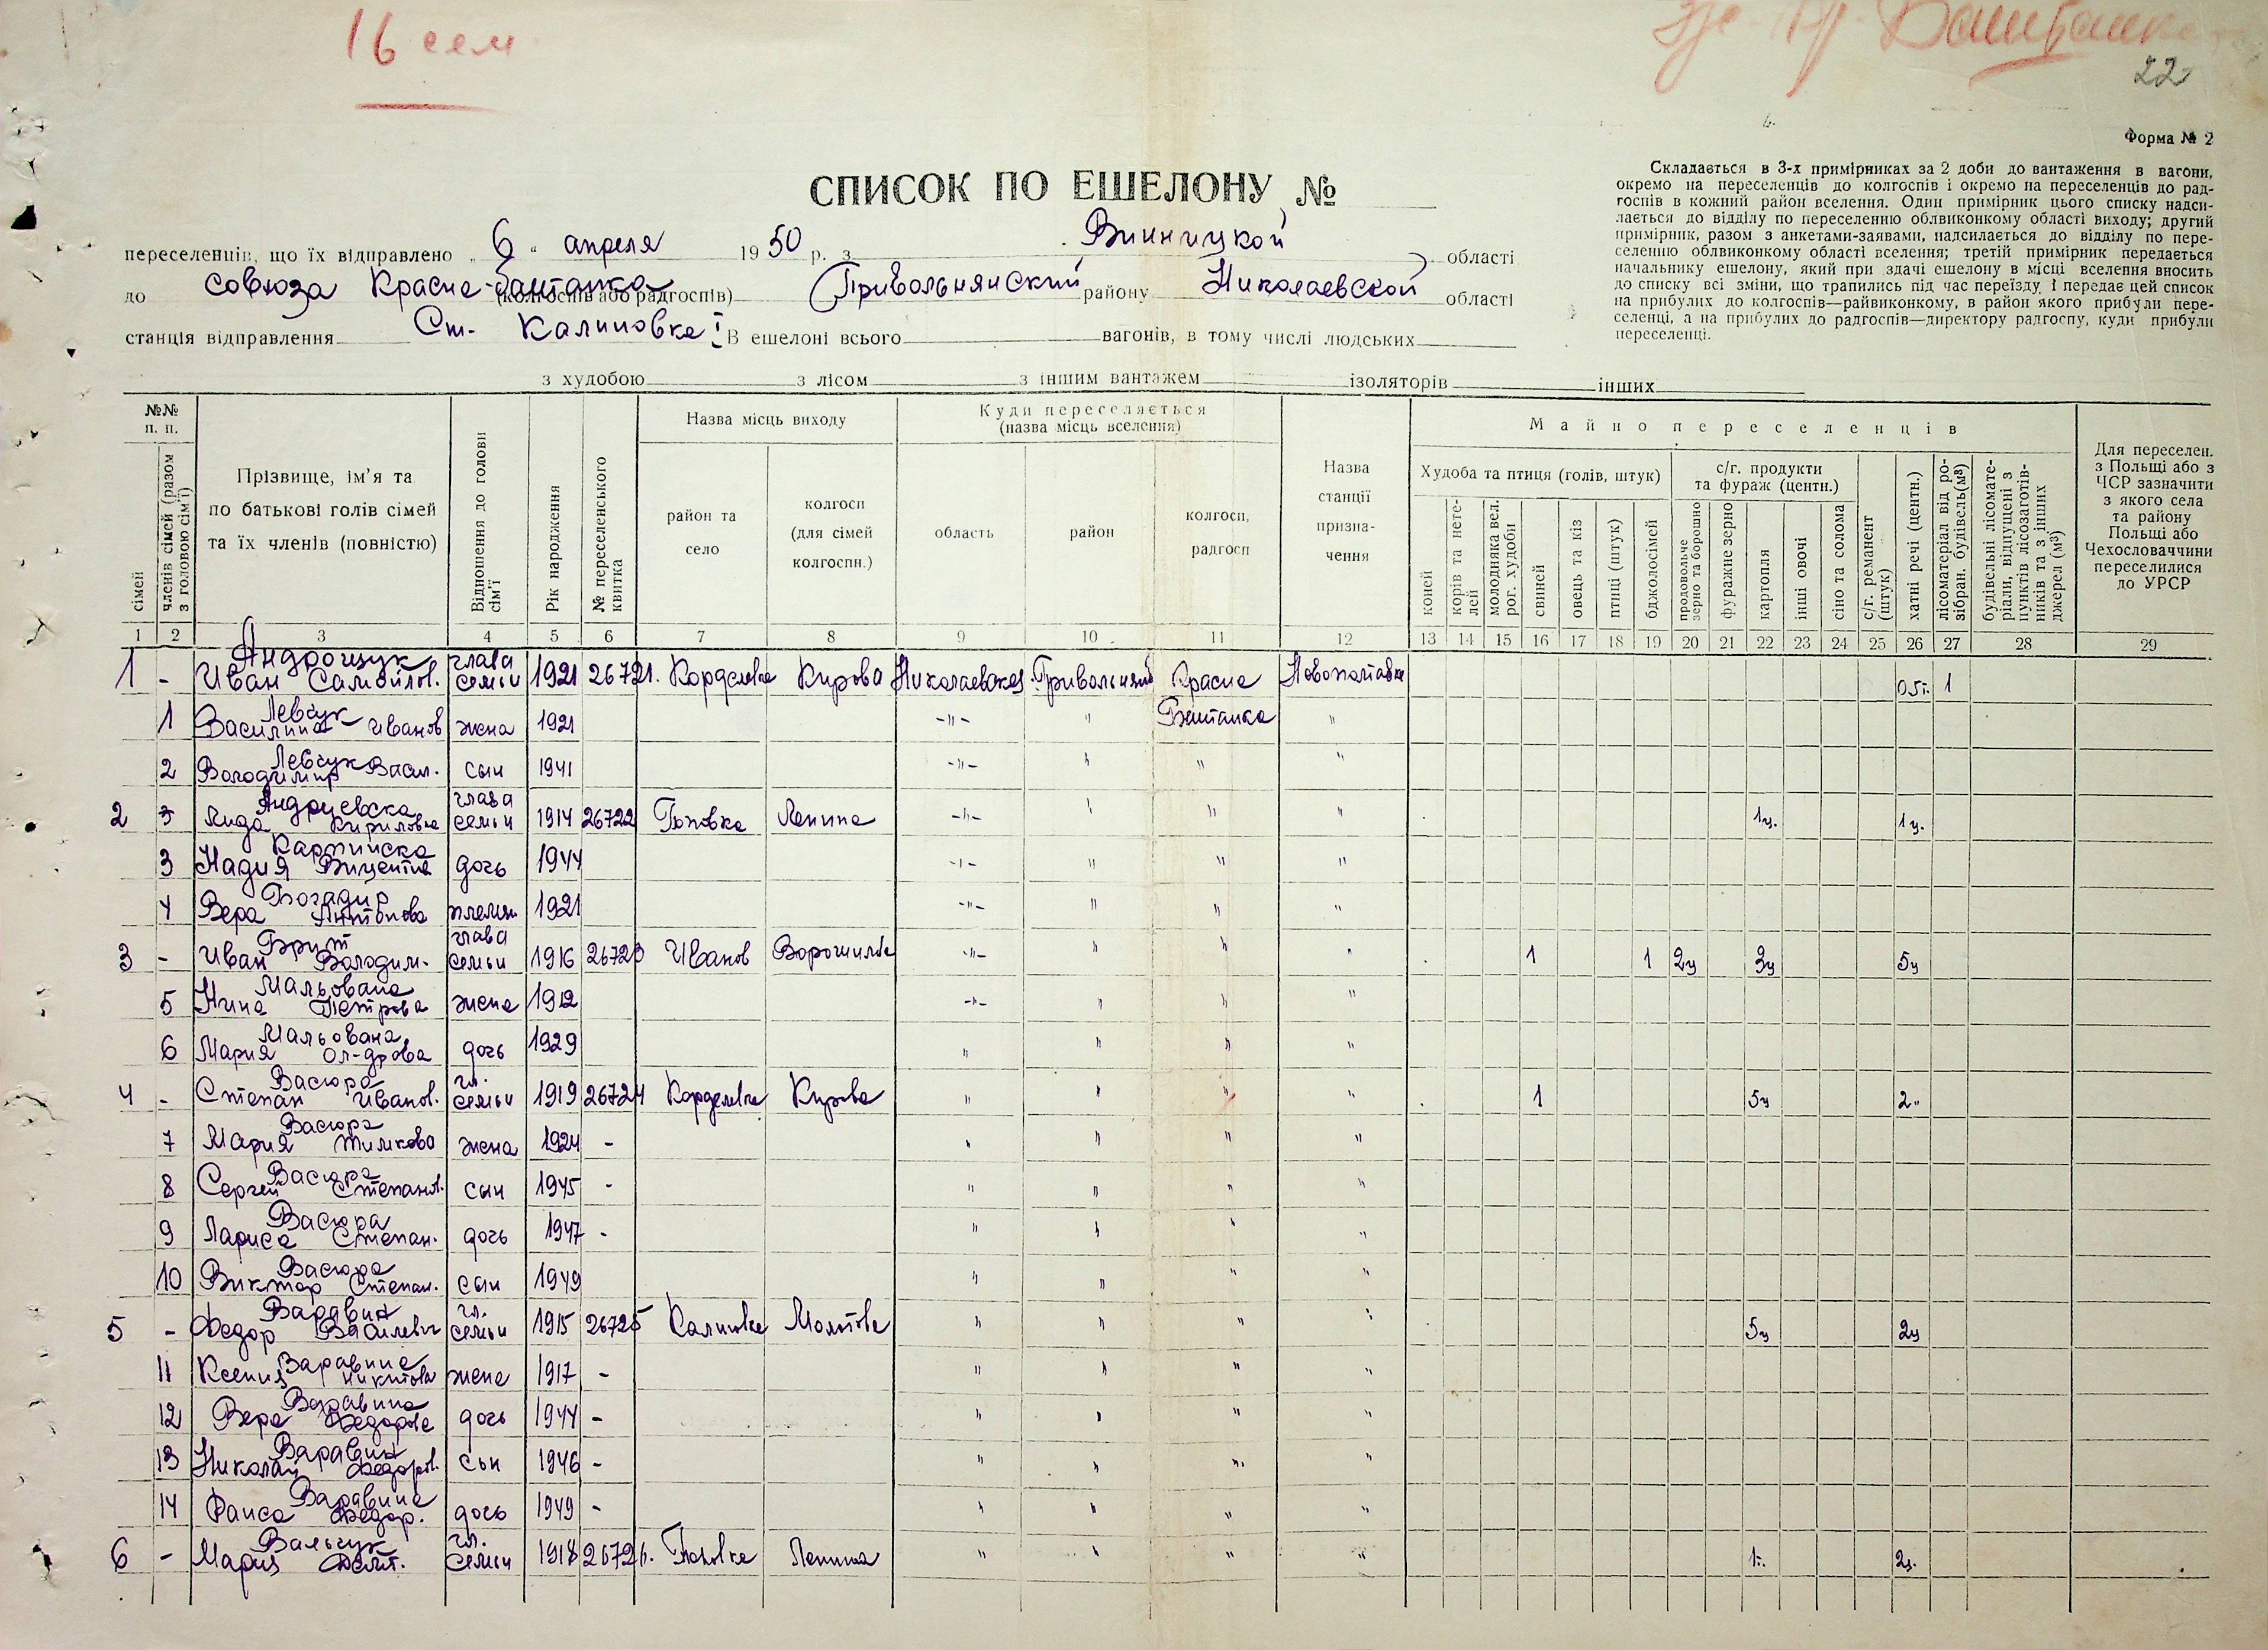 16 сем
22
Форма № 2
СПИСОК ПО ЕШЕЛОНУ №
Складається в 3-х примірниках за 2 доби до вантаження в вагони,
окремо на переселенців до колгоспів і окремо на переселенців до рад-
госпів в кожний район вселення. Один примірник цього списку надси-
лається до відділу по переселенню облвиконкому області виходу; другий
примірник, разом з анкетами-заявами, надсилається до відділу по пере-
селенню облвиконкому області вселення; третій примірник передається
начальнику ешелону, який при здачі ешелону в місці вселення вносить
до списку всі зміни, що трапились під час переїзду, і передає цей список
на прибулих до колгоспів—райвиконкому, в район якого прибули пере-
селенці, а на прибулих до радгоспів—директору радгоспу, куди прибули
переселенці.
переселенців, що їх відправлено „ 6 " апреля 1950 р. з Винницкой області
до совхоза Красне-баштанка (колгоспів або радгоспів) Привольнянский району Николаевской області
станція відправлення Ст. Калиновка I В ешелоні всього вагонів, в тому числі людських
з худобою з лісом з іншим вантажем ізоляторів інших
№№ п. п.
сімей
членів сімей (разом з головою сім'ї)
Прізвище, ім'я та
по батькові голів сімей
та їх членів (повністю)
Відношення до голови сім'ї
Рік народження
№ переселенського квитка
Назва місць виходу
район та
село
колгосп
(для сімей
колгоспн.)
Куди переселяється
(назва місць вселення)
область
район
колгосп,
радгосп
Назва
станції
призна-
чення
Майно переселенців
Худоба та птиця (голів, штук)
коней
корів та нете-
лей
молодняка вел.
рог. худоби
свиней
овець та кіз
птиці (штук)
бджолосімей
с/г. продукти
та фураж (центн.)
продовольче
зерно та борошно
фуражне зерно
картопля
інші овочі
сіно та солома
с/г. реманент
(штук)
хатні речі (центн.)
лісоматеріал від ро-
зібран. будівель (м³)
будівельні лісомате-
ріали, відпущені з
пунктів лісозаготів-
ників та з інших
джерел (м³)
Для переселен.
з Польщі або з
ЧСР зазначити
з якого села
та району
Польщі або
Чехословаччини
переселилися
до УРСР
1 2 3 4 5 6 7 8 9 10 11 12 13 14 15 16 17 18 19 20 21 22 23 24 25 26 27 28 29
1 - Андрощук Иван Самойлов. глава семьи 1921 26721. Корделевка Кирова Николаевская Привольнянский Красне Новополтавка 0,5т. 1
1 Левчук Василина Иванов жена 1921 -"- " Баштанка "
2 Левчук Володимир Васил. сын 1941 -"- " " "
2 Андриевска Лида Кириловна глава семьи 1914 26722 Поповка Ленина -"- " " " 1ц. 1ц.
3 Надия дочь 1944 -"- " " "
4 Богадир Вера Антонова племян. 1921 -"- " " "
3 - Брит Иван Володим. глава семьи 1916 26723 Иванов Ворошилов -"- " " " 1 1 2ц 3ц 5ц
5 Мальована Нина Петрова жена 1912 -"- " " "
6 Мальована Мария Ол-дрова дочь 1929 " " " "
4 - Васюра Степан Иванов. гл. семьи 1919 26724 Корделевка Кирова " " " " 1 5ц 2"
7 Васюра Мария Тимкова жена 1924 - " " " "
8 Васюра Сергей Степанов. сын 1945 - " " " "
9 Васюра Лариса Степан. дочь 1947 - " " " "
10 Васюра Виктор Степан. сын 1949 " " " "
5 - Варавин Федор Василевич гл. семьи 1915 26725 Калиновка Молотова " " " " 5ц 2ц
11 Варавина Ксения Никитова жена 1917 - " " " "
12 Варавина Вера Федорова дочь 1944 - " " " "
13 Варавин Николай Федоров. сын 1946 - " " " "
14 Варавина Раиса Федор. дочь 1949 - " " " "
6 - Вальчук Мария гл. семьи 1918 26726. Поповка Ленина " " " " 2ц.